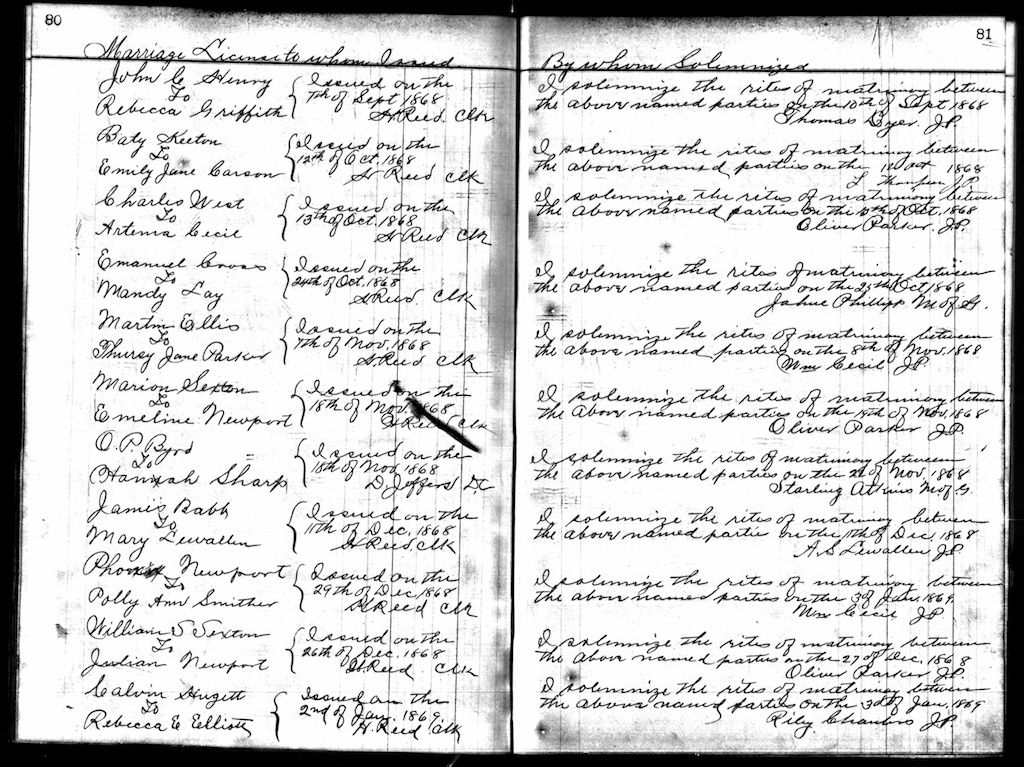 80
Marriage License to whom Issued
John C Henry
To
Rebecca Griffith
Issued on the
7th of Sept 1868
H Reed Clk
Baty Keeton
To
Emily Jane Carson
Issued on the
12th of Oct, 1868
H Reed Clk
Charles West
To
Artema Cecil
Issued on the
13th of Oct, 1868
H Reed Clk
Emanuel Cross
To
Mandy Lay
Issued on the
24th of Oct, 1868
H Reed Clk
Martin Ellis
To
Thursy Jane Parker
Issued on the
7th of Nov, 1868
H. Reed Clk
Marion Sexton
To
Emeline Newport
Issued on the
18th of Nov, 1868
H Reed Clk
O. P. Byrd
To
Hannah Sharp
Issued on the
18th of Nov 1868
D. Jeffers D.C
James Babb
To
Mary Lewallen
Issued on the
11th of Dec, 1868
H Reed Clk
Newport
To
Polly Ann Smither
Issued on the
29th of Dec, 1868
H Reed Clk
William S Sexton
To
Julian Newport
Issued on the
26th of Dec. 1868
H Reed Clk
Calvin Hugett
To
Rebecca E Elliott
Issued on the
2nd of Jan. 1869.
H. Reed Clk
81
By whom Solemnized
I solemnize the rites of matrimony between
the above named parties on the 10th of Sept 1868
Thomas Byer. J.P.
I solemnize the rites of matrimony between
the above named parties on the 12 Oct 1868
L Thompson J.P.
I solemnize the rites of matrimony between
the above named parties on the of Oct, 1868
Oliver Parker, J.P.
I solemnize the rites of matrimony between
the above named parties on the 25th Oct 1868
Phillipp M. of G.
I solemnize the rites of matrimony between
the above named parties on the 8th of Nov, 1868
Wm Cecil J.P.
I solemnize the rites of matrimony between
the above named parties on the 19th of Nov, 1868
Oliver Parker J.P.
I solemnize the rites of matrimony between
the above named parties on the of Nov, 1868
Starling Atkins M. of G.
I solemnize the rites of matrimony between
the above named parties on the 11th of Dec, 1868
A S Lewallen J.P.
I solemnize the rites of matrimony between
the above named parties on the 3d of Jan, 1869
Wm Cecil J.P.
I solemnize the rites of matrimony between
the above named parties on the 27 of Dec, 1868
Oliver Parker J.P.
I solemnize the rites of matrimony between
the above named parties on the 3d of Jan, 1869
Riley Chambers J.P.